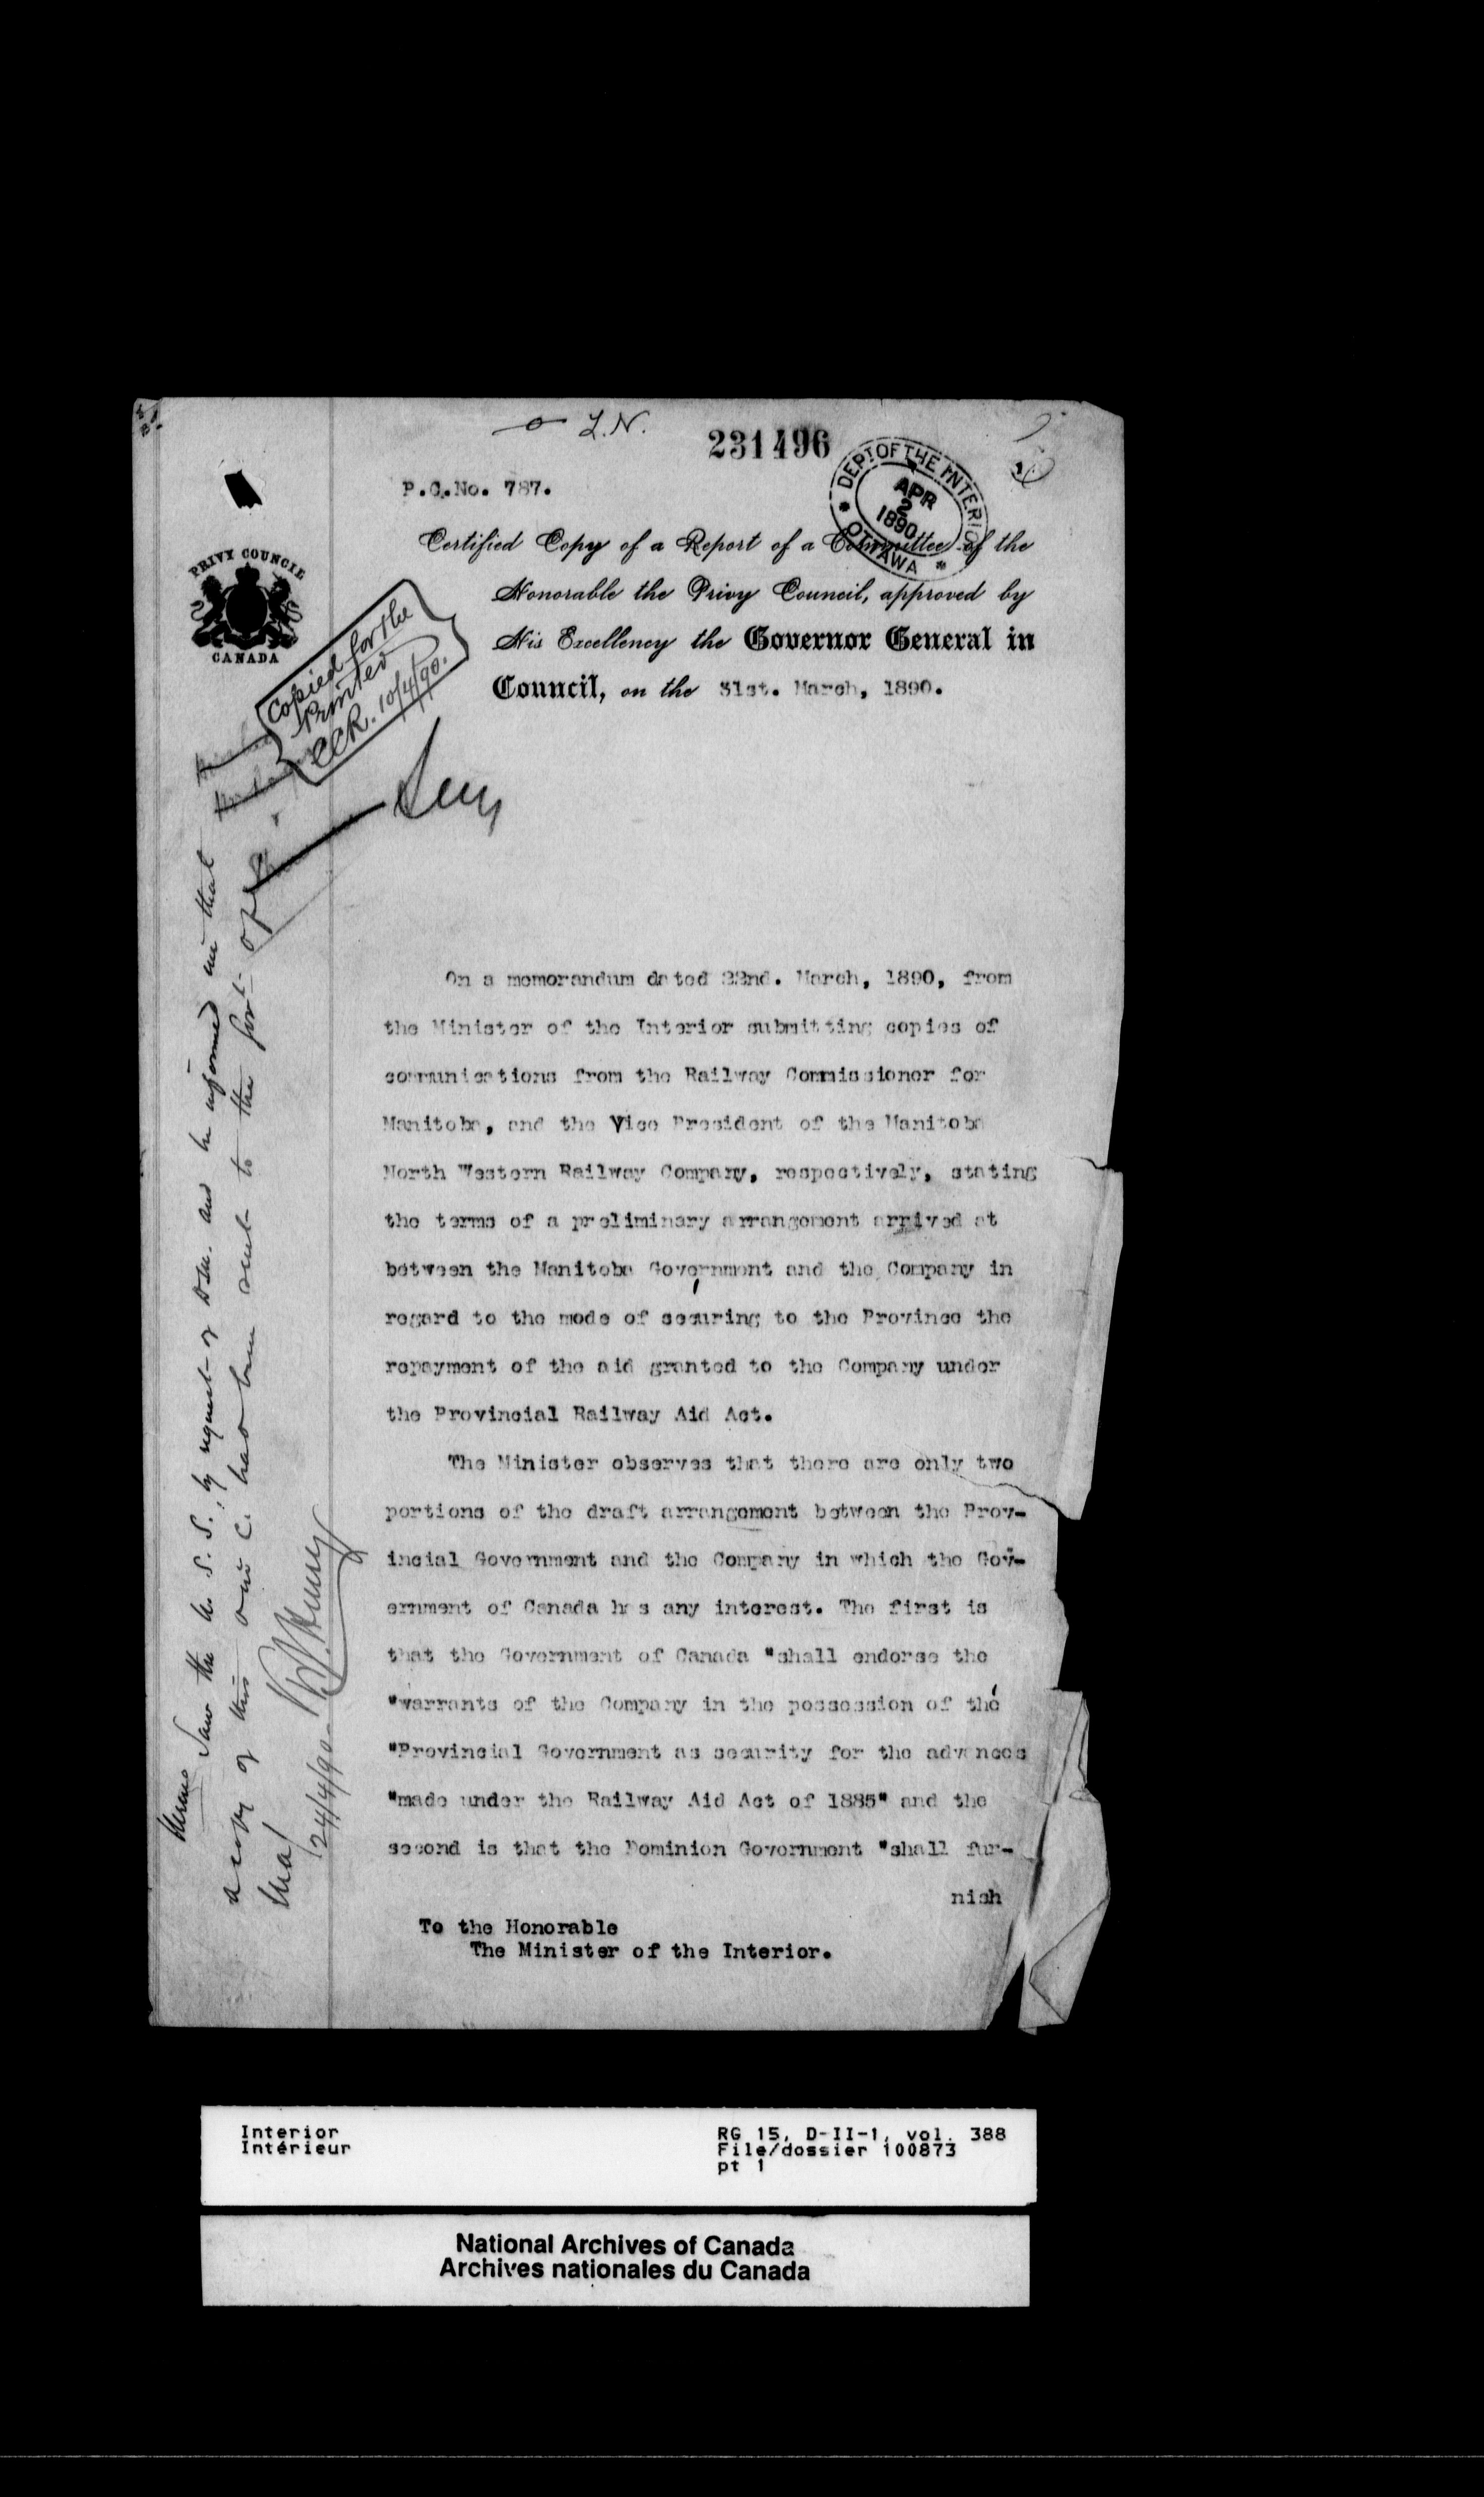 L.N.
231496
DEPT OF THE INTERIOR
APR
2
1890
OTTAWA
P.C.No. 787.
PRIVY COUNCIL
CANADA
Certified Copy of a Report of a Committee of the
Honorable the Privy Council, approved by
His Excellency the Governor General in
Council, on the 31st. March, 1890.
Copied for the
Printer
CCR. 10/4/90.
On a memorandum dated 22nd. March, 1890, from
the Minister of the Interior submitting copies of
communications from the Railway Commissioner for
Manitoba, and the Vice President of the Manitoba
North Western Railway Company, respectively, stating
the terms of a preliminary arrangement arrived at
between the Manitoba Government and the Company in
regard to the mode of securing to the Province the
repayment of the aid granted to the Company under
the Provincial Railway Aid Act.
The Minister observes that there are only two
portions of the draft arrangement between the Prov-
incial Government and the Company in which the Gov-
ernment of Canada has any interest. The first is
that the Government of Canada "shall endorse the
"warrants of the Company in the possession of the
"Provincial Government as security for the advances
"made under the Railway Aid Act of 1885" and the
second is that the Dominion Government "shall fur-
nish
To the Honorable
The Minister of the Interior.
Memo Saw the U.S.S. by request of and he informed me that
a copy of this O in C. has been sent to the Govt of
Man
24/4/90
Interior
Intérieur
RG 15, D-II-1, vol. 388
File/dossier 100873
pt 1
National Archives of Canada
Archives nationales du Canada